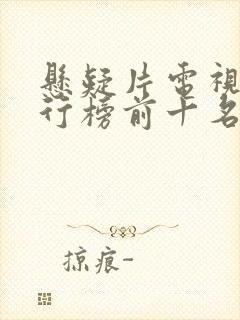 懸疑片電視
行榜前十名
掠痕-